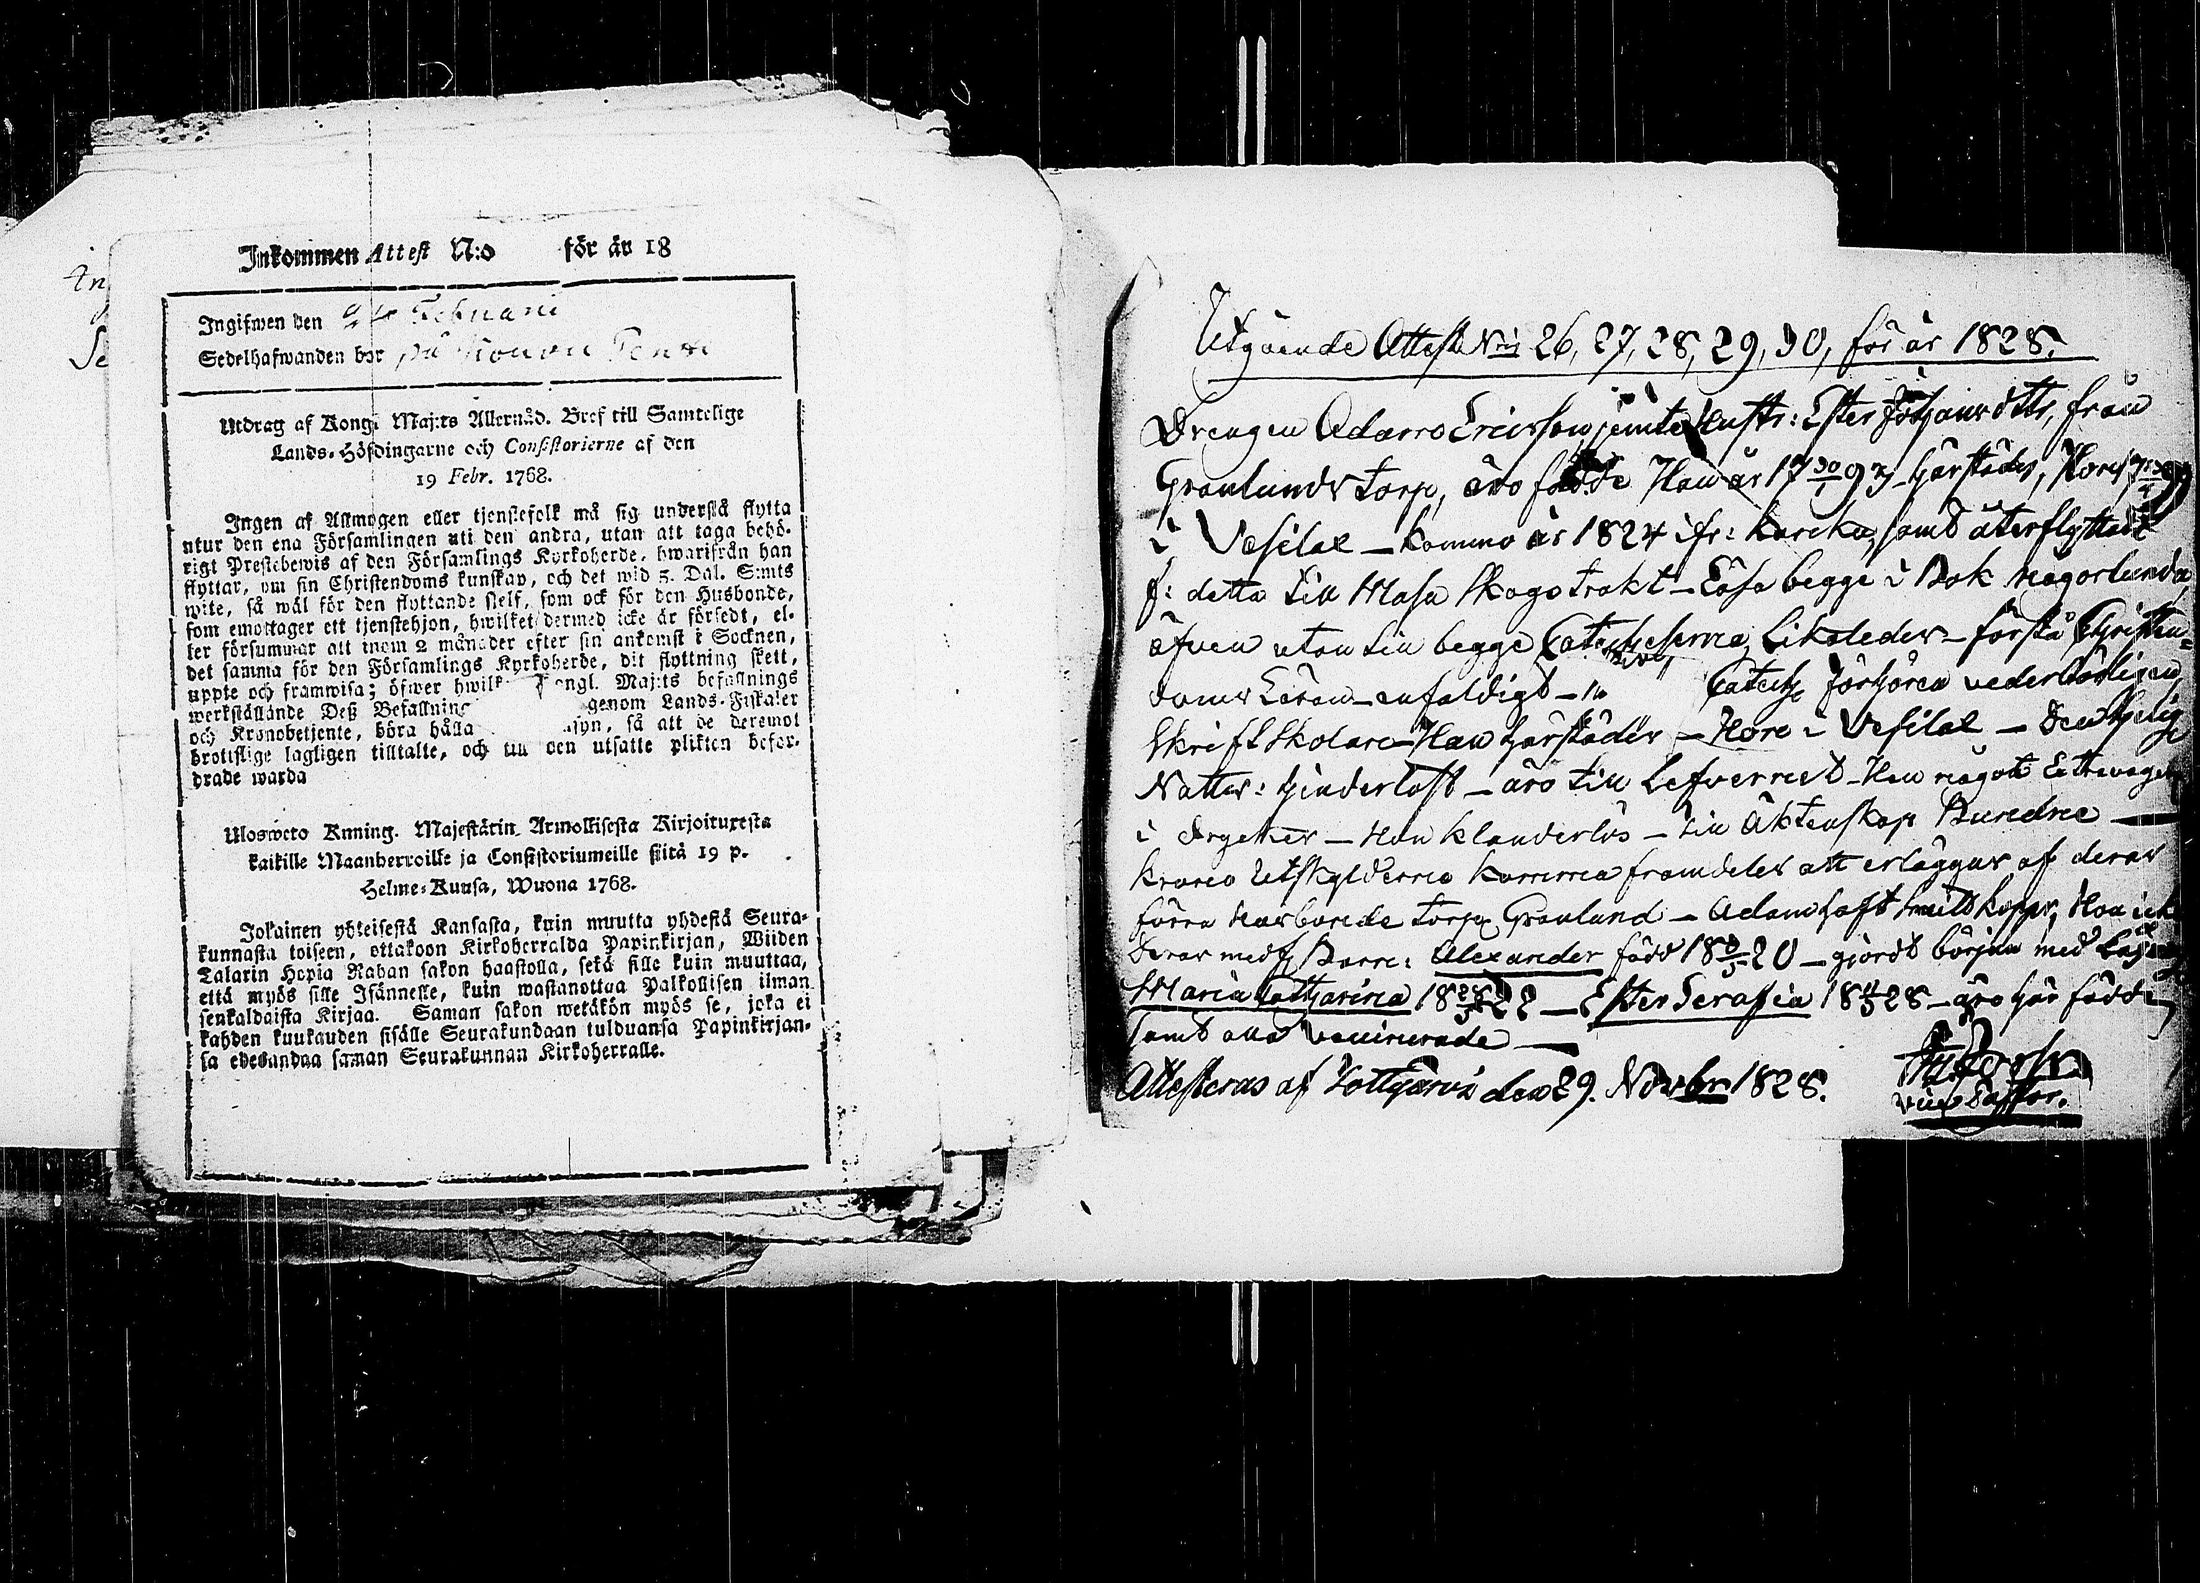 Inkommen Attest N:o för år 18
Ingifwen den 24 Februarii
Sedelhafwanden bor på
Utdrag af Kongl. Maj:ts Allernåd. Bref till Samtelige
Lands-Höfdingarne och Consistorierne af den
19 Febr. 1768.
Ingen af Allmogen eller tjenstefolk må sig understå flytta
utur den ena Församlingen uti den andra, utan att taga behö-
rigt Prestebewis af den Församlings Kyrkoherde, hwarifrån han
flyttar, om sin Christendoms kunskap, och det wid 5. Dal. S:mts
wite, så wäl för den flyttande sjelf, som ock för den Husbonde,
som emottager ett tjenstehjon, hwilket dermed icke är försedt, el-
ler försummar att inom 2 månader efter sin ankomst i Socknen,
det samma för den Församlings Kyrkoherde, dit flyttning skett,
uppte och framwisa; öfwer hwilk ongl. Maj:ts befallnings
werkställande Deß Befallning genom Lands-Fiskaler
och Kronobetjente, böra hålla syn, så att de deremot
brottslige lagligen tilltalte, och till den utsatte plikten befor-
drade warda
Ulosweto Kuning. Majestätin Armollisesta Kirjoituxesta
kaikille Maanherroille ja Consistoriumeille siitä 19 p.
Helme-Kuusa, Wuona 1768.
Jokainen yhteisestä Kansasta, kuin muutta yhdestä Seura-
kunnasta toiseen, ottakoon Kirkoherralda Papinkirjan, Wiiden
Talarin Hopia Rahan sakon haastolla, sekä sille kuin muuttaa,
että myös sille Isännelle, kuin wastanottaa Palkollisen ilman
senkaldaista Kirjaa. Saman sakon wetäkön myös se, joka ei
kahden kuukauden sisälle Seurakundaan tulduansa Papinkirjan-
sa edesandaa saman Seurakunnan Kirkoherralle.
Utgående Attest N:ris 26, 27, 28, 29, 30, för år 1828.
Drengen Adam Ericsson jemte Hustr: Ester Johansdttr, från
Granlunds torp, äro födde Han år 17 30/1 93 härstädes, Hon 17 99
i Vesilax – kommo år 1824 ifr: Karcku, samt återflytta
f: detta till Masa Skogstrakt – Läsa begge i Bok någorlunda,
äfven utantill begge Catecheserna, likaledes – förstå Christen-
doms Läran enfaldigt – Catech: förhören vederbörligen,
Skriftskolan Han härstädes – Hon i Vesilax – Den helige
Nattv: hinderlöst – äro till Lefvernet – Han något
i drycker – Hon klanderlös – till Äktenskap Bundne –
Krono Utskylderne komma framdeles att erläggas af deras
förra Husbonde torp: Granlund – Adam haft koppr, Hon ick
Deras medf: Barn: Alexander född 18 20 – gjordt början med
Maria Catharina 18 28/5 22 – Ester Serafia 18 28 – äro här födde,
samt alla vaccinerade –
Attesteras af Tottijärvi den 29. Novbr 1828.
vice Pastor.